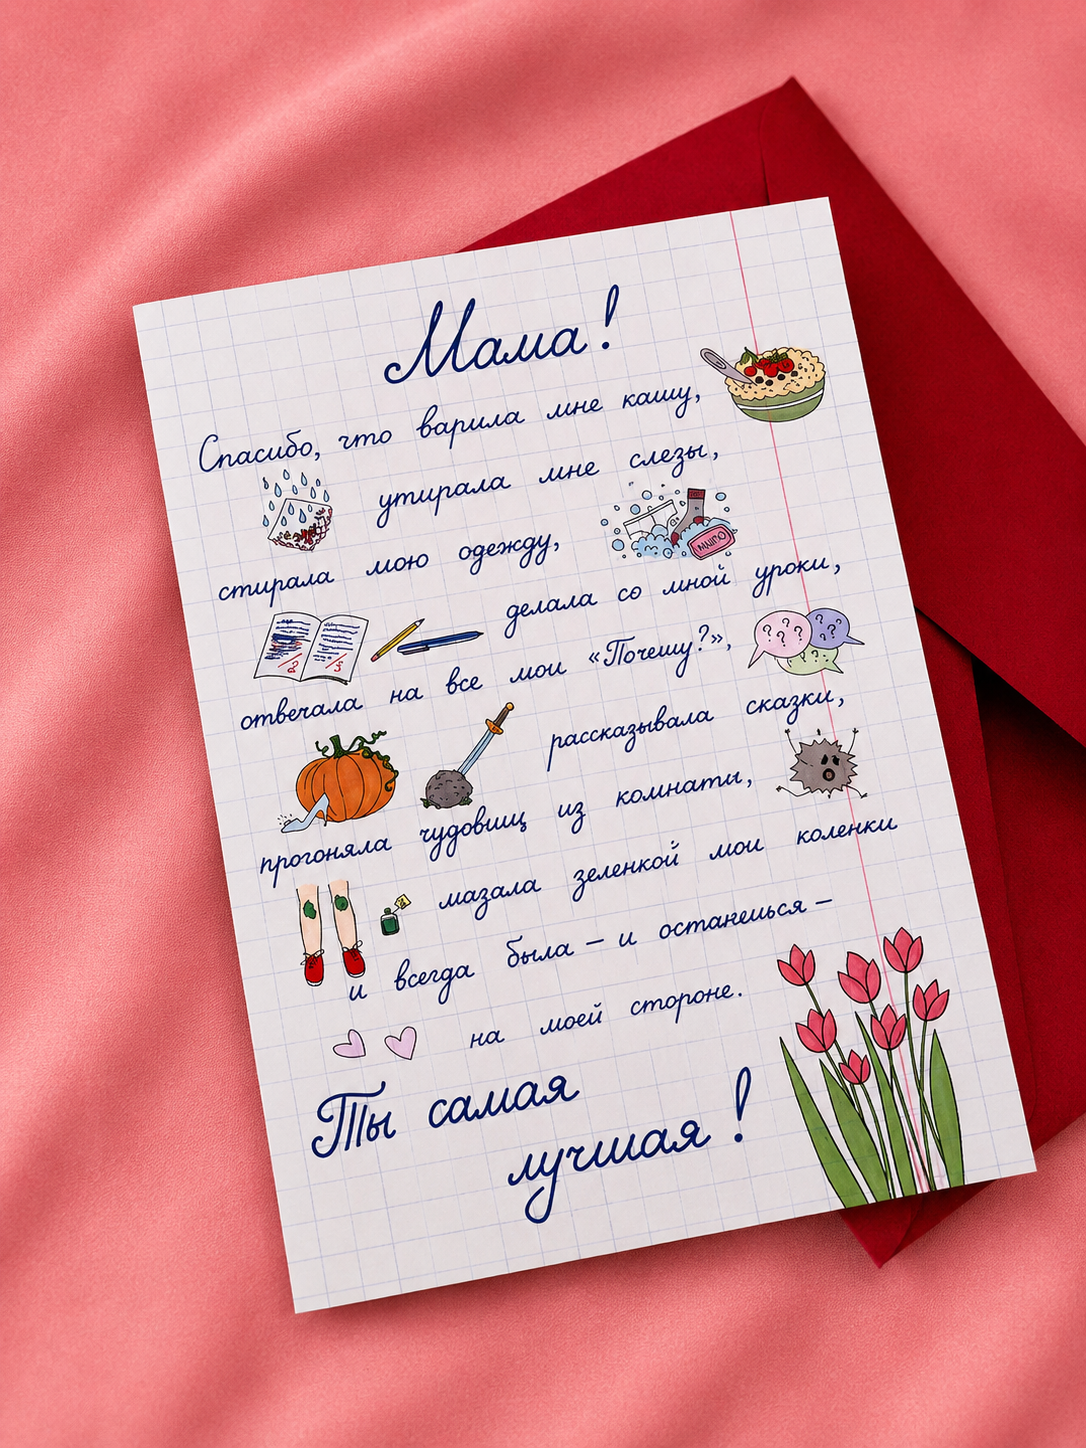 Мама!
Спасибо, что варила мне кашу,
утирала мне слезы,
стирала мою одежду,
МЫЛО
делала со мной уроки,
2 3
отвечала на все мои «Почему?»,
? ? ? ? ? ? ? ? ?
рассказывала сказки,
прогоняла чудовищ из комнаты,
мазала зеленкой мои коленки
и всегда была – и останешься –
на моей стороне.
Ты самая
лучшая!